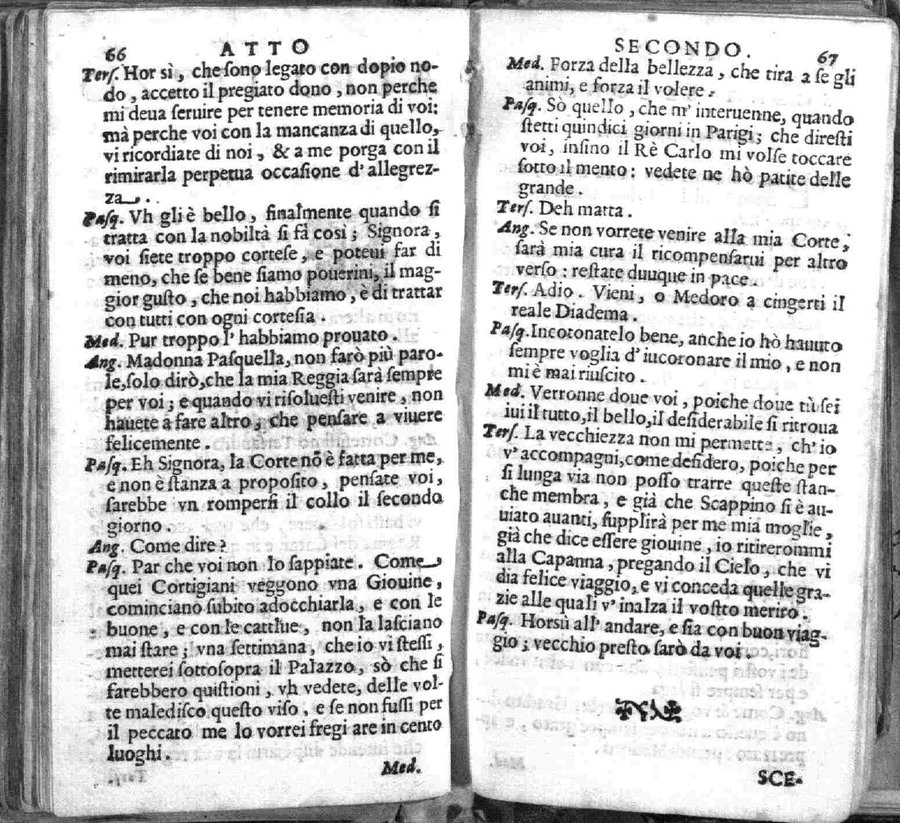 66 ATTO
Ters. Hor sì, che sono legato con dopio no-
do, accetto il pregiato dono, non perche
mi deua seruire per tenere memoria di voi:
mà perche voi con la mancanza di quello,
vi ricordiate di noi, & a me porga con il
rimirarla perpetua occasione d'allegrez-
za.
Pasq. Vh gli è bello, finalmente quando si
tratta con la nobiltà si fà così; Signora,
voi siete troppo cortese, e poteui far di
meno, che se bene siamo pouerini, il mag-
gior gusto, che noi habbiamo, è di trattar
con tutti con ogni cortesia.
Med. Pur troppo l'habbiamo prouato.
Ang. Madonna Pasquella, non farò più paro-
le, solo dirò, che la mia Reggia sarà sempre
per voi; e quando vi risoluesti venire, non
hauete a fare altro, che pensare a viuere
felicemente.
Pasq. Eh Signora, la Corte nõ è fatta per me,
e non è stanza a proposito, pensate voi,
sarebbe vn rompersi il collo il secondo
giorno.
Ang. Come dire?
Pasq. Par che voi non lo sappiate. Come
quei Cortigiani veggono vna Giouine,
cominciano subito adocchiarla, e con le
buone, e con le cattiue, non la lasciano
mai stare; vna settimana, che io vi stessi,
metterei sottosopra il Palazzo, sò che si
farebbero quistioni, vh vedete, delle vol-
te maledisco questo viso, e se non fussi per
il peccaro me lo vorrei fregi are in cento
luoghi.
Med.
SECONDO. 67
Med. Forza della bellezza, che tira a se gli
animi, e forza il volere.
Pasq. Sò quello, che m' interuenne, quando
stetti quindici giorni in Parigi; che diresti
voi, insino il Rè Carlo mi volse toccare
sotto il mento: vedete ne hò patite delle
grande.
Ters. Deh matta.
Ang. Se non vorrete venire alla mia Corte,
sarà mia cura il ricompensarui per altro
verso: restate duuque in pace.
Ters. Adio. Vieni, o Medoro a cingerti il
reale Diadema.
Pasq. Incotonatelo bene, anche io hò hauuto
sempre voglia d'iucoronare il mio, e non
mi è mai riuscito.
Med. Verronne doue voi, poiche doue tù sei
iui il tutto, il bello, il desiderabile si ritroua
Ters. La vecchiezza non mi permetta, ch'io
v'accompagni, come desidero, poiche per
si lunga via non posso trarre queste stan-
che membra, e già che Scappino si è au-
uiato auanti, supplirà per me mia moglie,
già che dice essere giouine, io ritirerommi
alla Capanna, pregando il Cielo, che vi
dia felice viaggio, e vi conceda quelle gra-
zie alle quali v'inalza il vostto meriro.
Pasq. Horsù all' andare, e sia con buon viag-
gio; vecchio presto sarò da voi.
SCE-